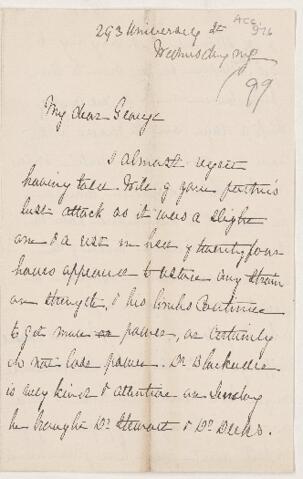 293 University St
Acc. 976
Wednesday mg
/99
My dear George
I almost regret
having told Wile of your father's
last attack as it was a slight
one & a rest in bed of twenty four
hours appeared to restore any
or strength, & his limbs continue
to get more power, or certainly
do not lose power. Dr Blackader
is very kind & attentive on Sunday
he brought Dr Stewart & Dr Deeks.